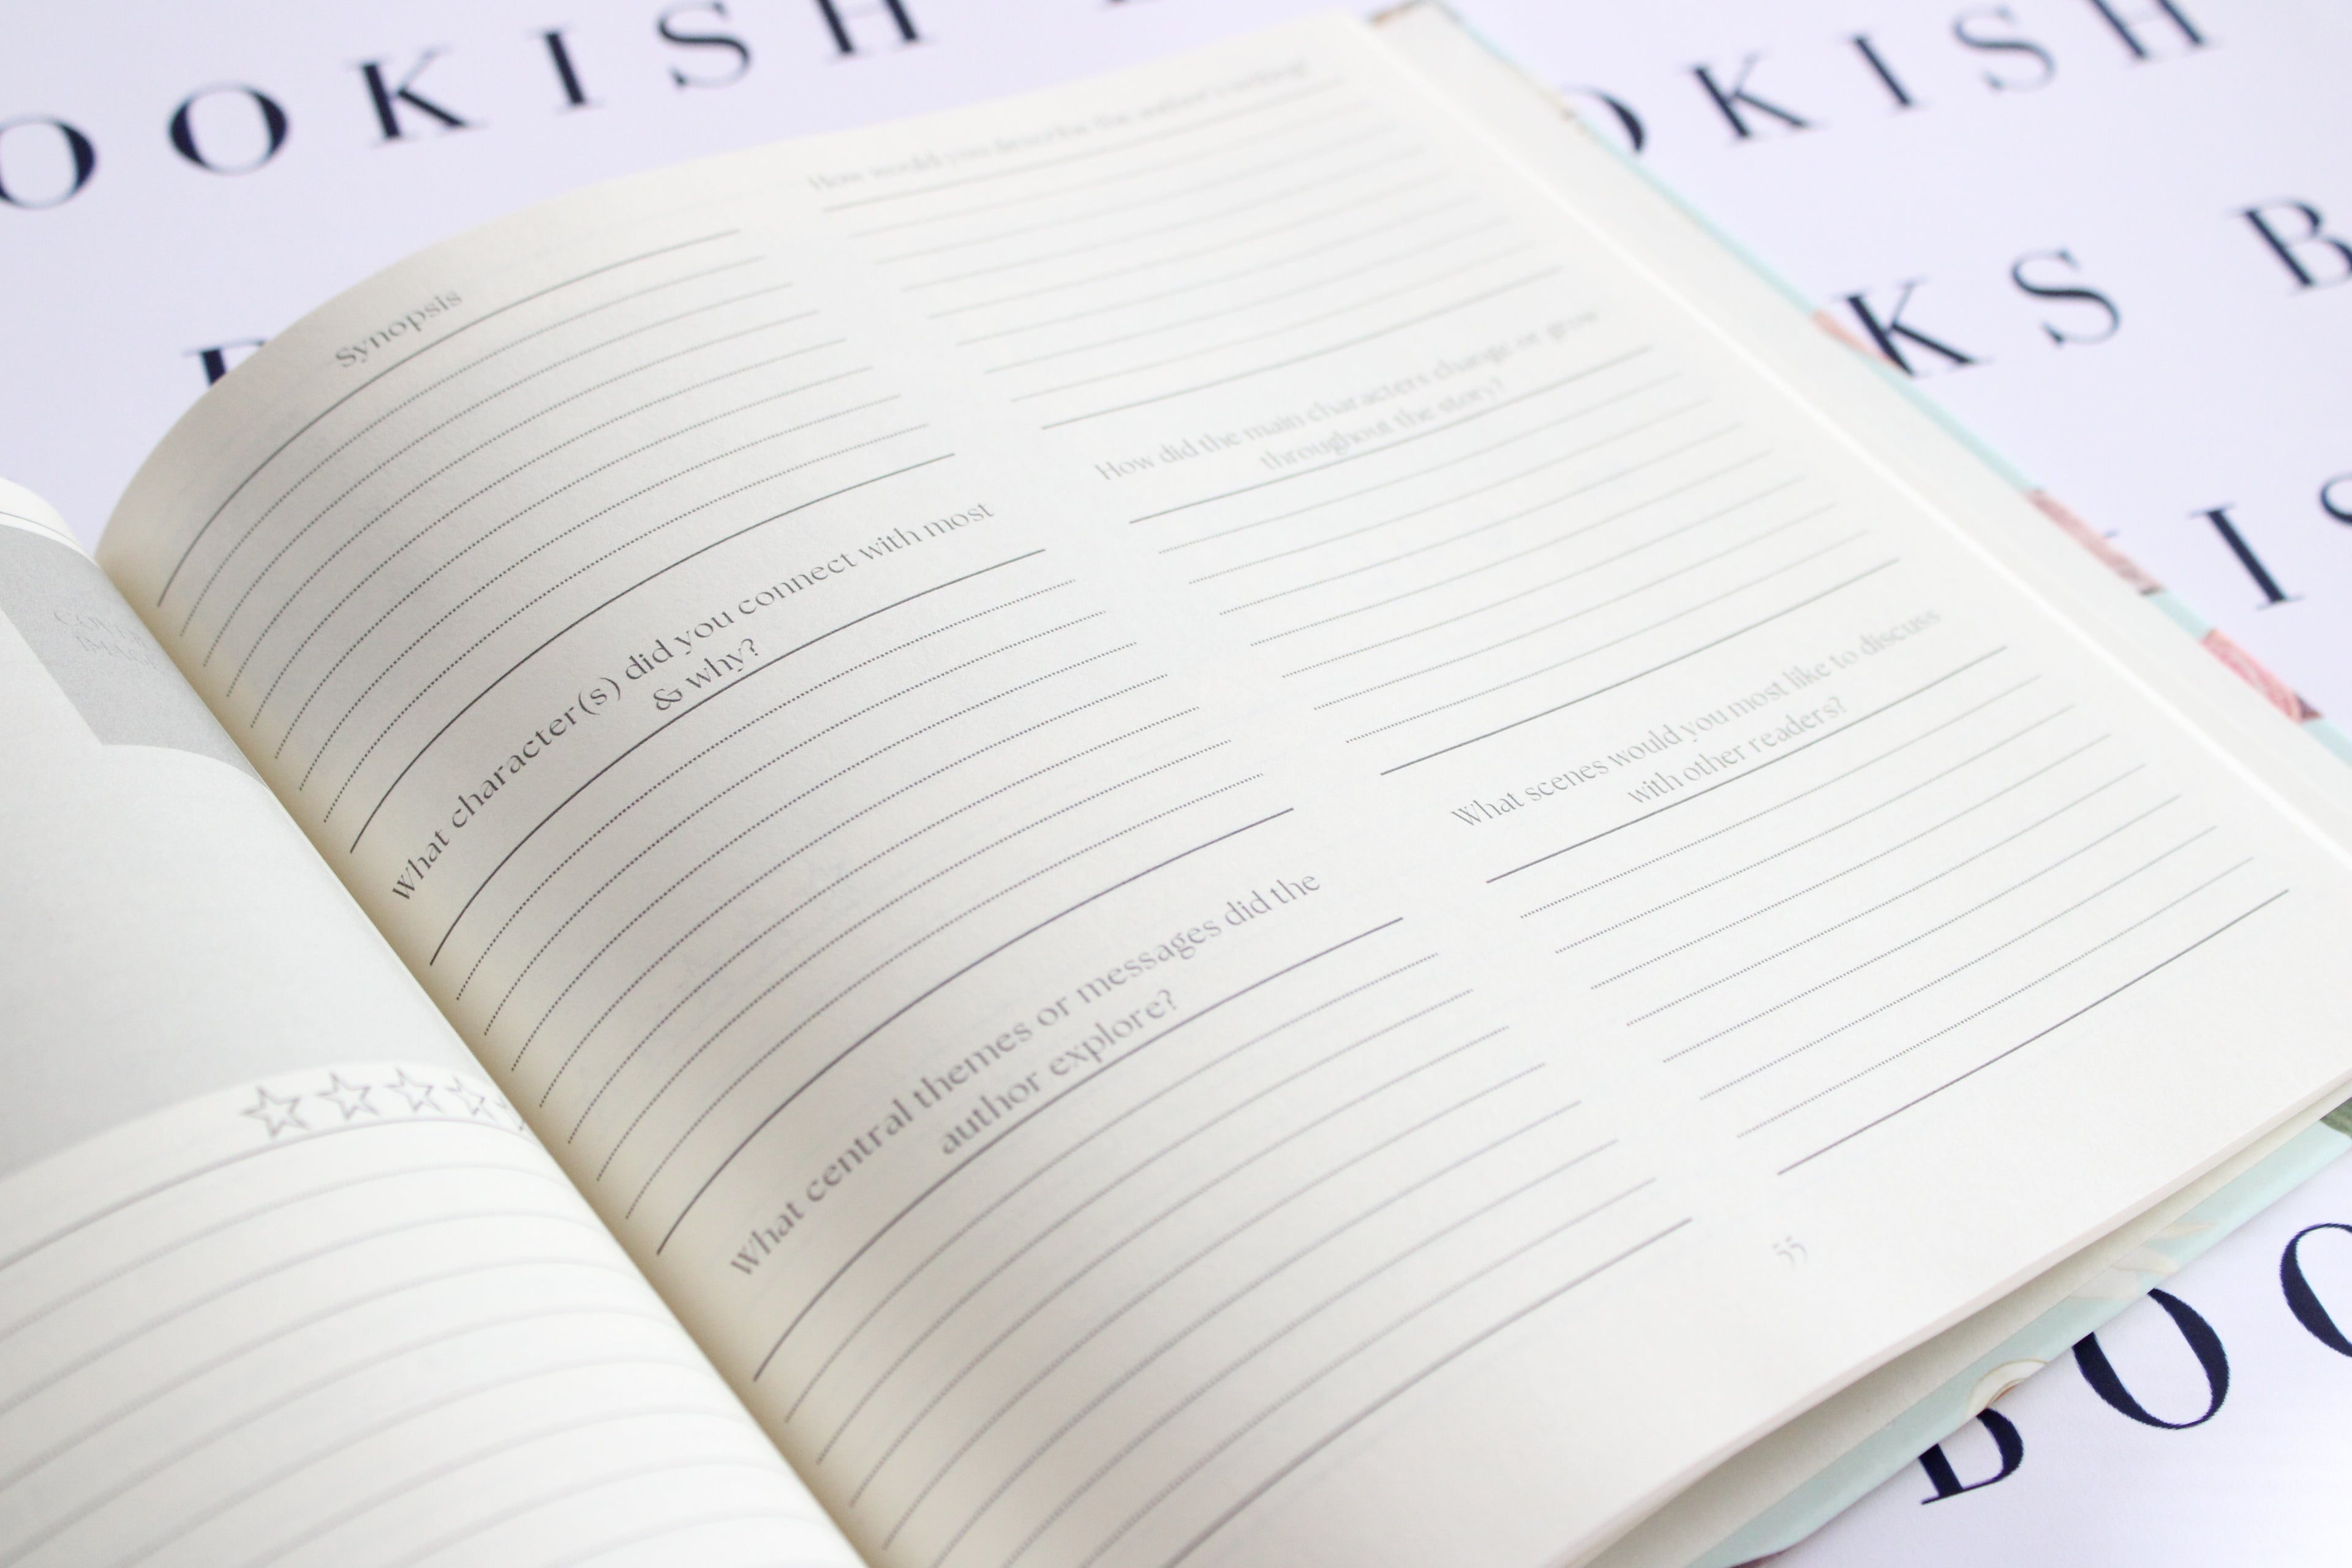 OOKISH
OKISH
KS B
Synopsis
What character(s) did you connect with most
& why?
What central themes or messages did the
author explore?
How would you describe the author's writing?
How did the main characters change or grow
throughout the story?
What scenes would you most like to discuss
with other readers?
55
IS
BOO